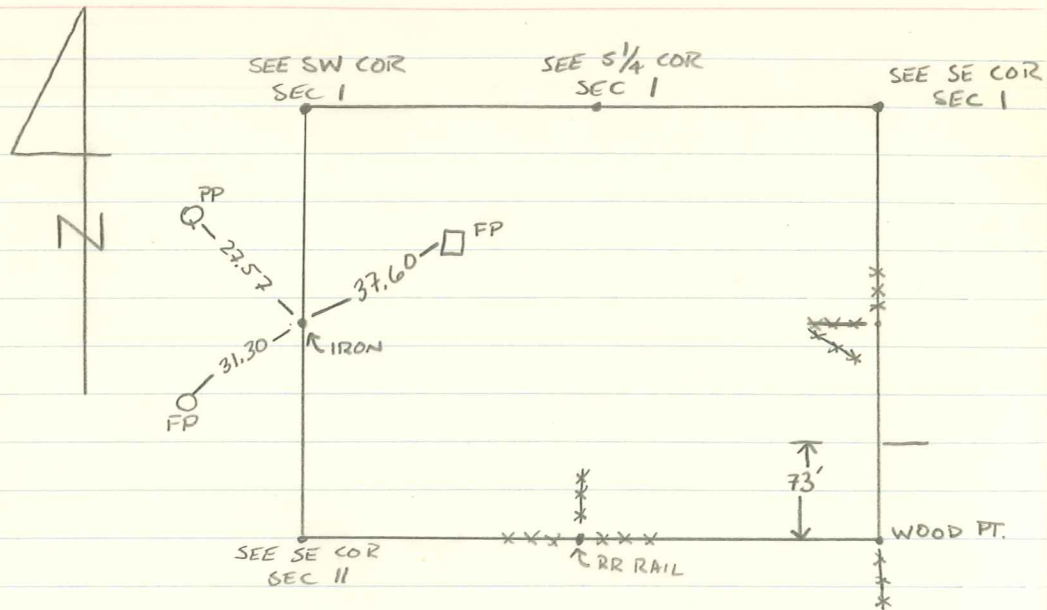 SEE SW COR
SEC 1
SEE S 1/4 COR
SEC 1
SEE SE COR
SEC 1
N
PP
27.57
37.60
FP
IRON
31.30
FP
73'
WOOD PT.
RR RAIL
SEE SE COR
SEC 11